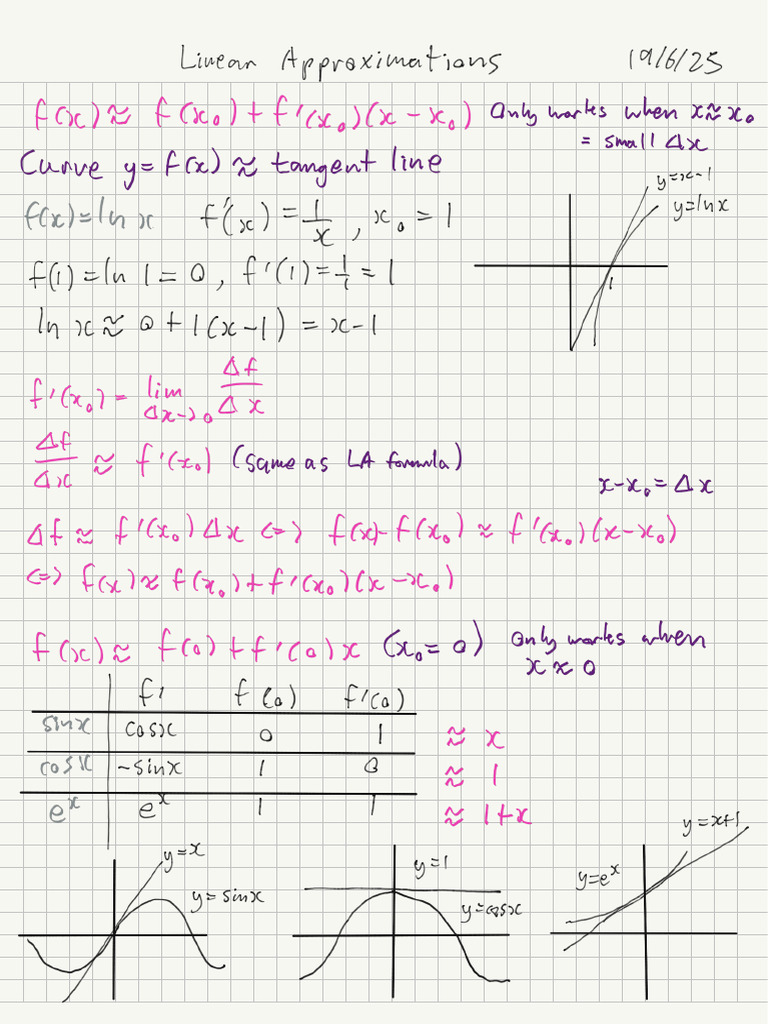 Linear Approximations 19/6/25
f(x) ≈ f(x₀) + f'(x₀)(x - x₀) Only works when x ≈ x₀
= small Δx
Curve y = f(x) ≈ tangent line
y=x-1
y=lnx
f(x) = ln x f'(x) = 1/x, x₀ = 1
1
f(1) = ln 1 = 0, f'(1) = 1/1 = 1
ln x ≈ 0 + 1(x-1) = x-1
f'(x₀) = lim Δx->0 Δf/Δx
Δf/Δx ≈ f'(x₀) (same as LA formula)
x-x₀ = Δx
Δf ≈ f'(x₀) Δx <=> f(x) - f(x₀) ≈ f'(x₀)(x-x₀)
<=> f(x) ≈ f(x₀) + f'(x₀)(x-x₀)
f(x) ≈ f(0) + f'(0)x (x₀ = 0) Only works when
x ≈ 0
f' f(0) f'(0)
sinx cosx 0 1 ≈ x
cosx -sinx 1 0 ≈ 1
eˣ eˣ 1 1 ≈ 1+x
y=x
y=sinx
y=1
y=cosx
y=x+1
y=eˣ